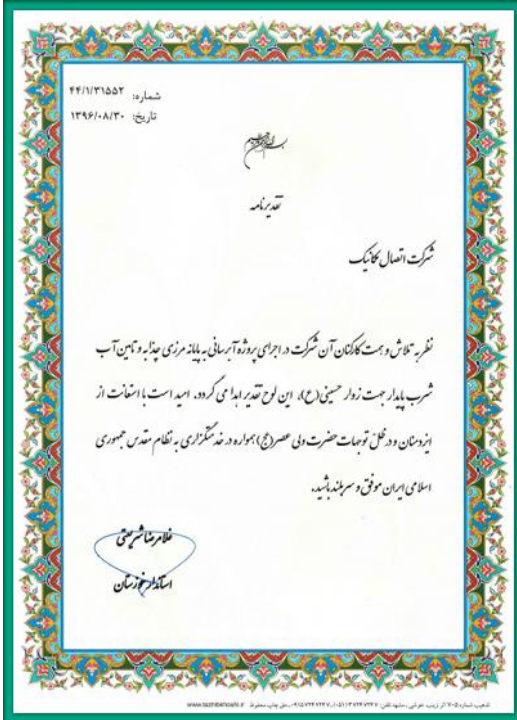 شماره: ۴۴/۱/۳۱۵۵۲
تاریخ: ۱۳۹۶/۰۸/۳۰
بسم الله الرحمن الرحیم
تقدیرنامه
شرکت اتصال مکانیک
نظر به تلاش و همت کارکنان آن شرکت در اجرای پروژه آبرسانی به پایانه مرزی چذابه و تامین آب
شرب پایدار جهت زوار حسینی(ع)، این لوح تقدیر اهدا می گردد. امید است با استعانت از
ایزد منان و در ظل توجهات حضرت ولی عصر(عج) همواره در خدمتگزاری به نظام مقدس جمهوری
اسلامی ایران موفق و سربلند باشید.
غلامرضا شریعتی
استاندار خوزستان
تذهیب شماره ۷۰۵ اثر زینب خوشی، مشهد تلفن: